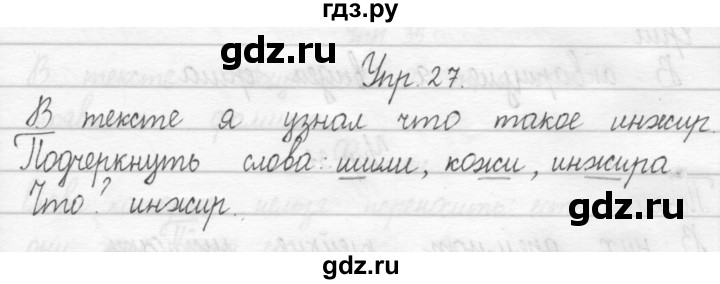 гдз.ру
Упр. 27.
gdz.ru
В тексте я узнал что такое инжир.
Подчеркнуть слова: шили, кожи, инжира
Что? инжир.
gdz.ru